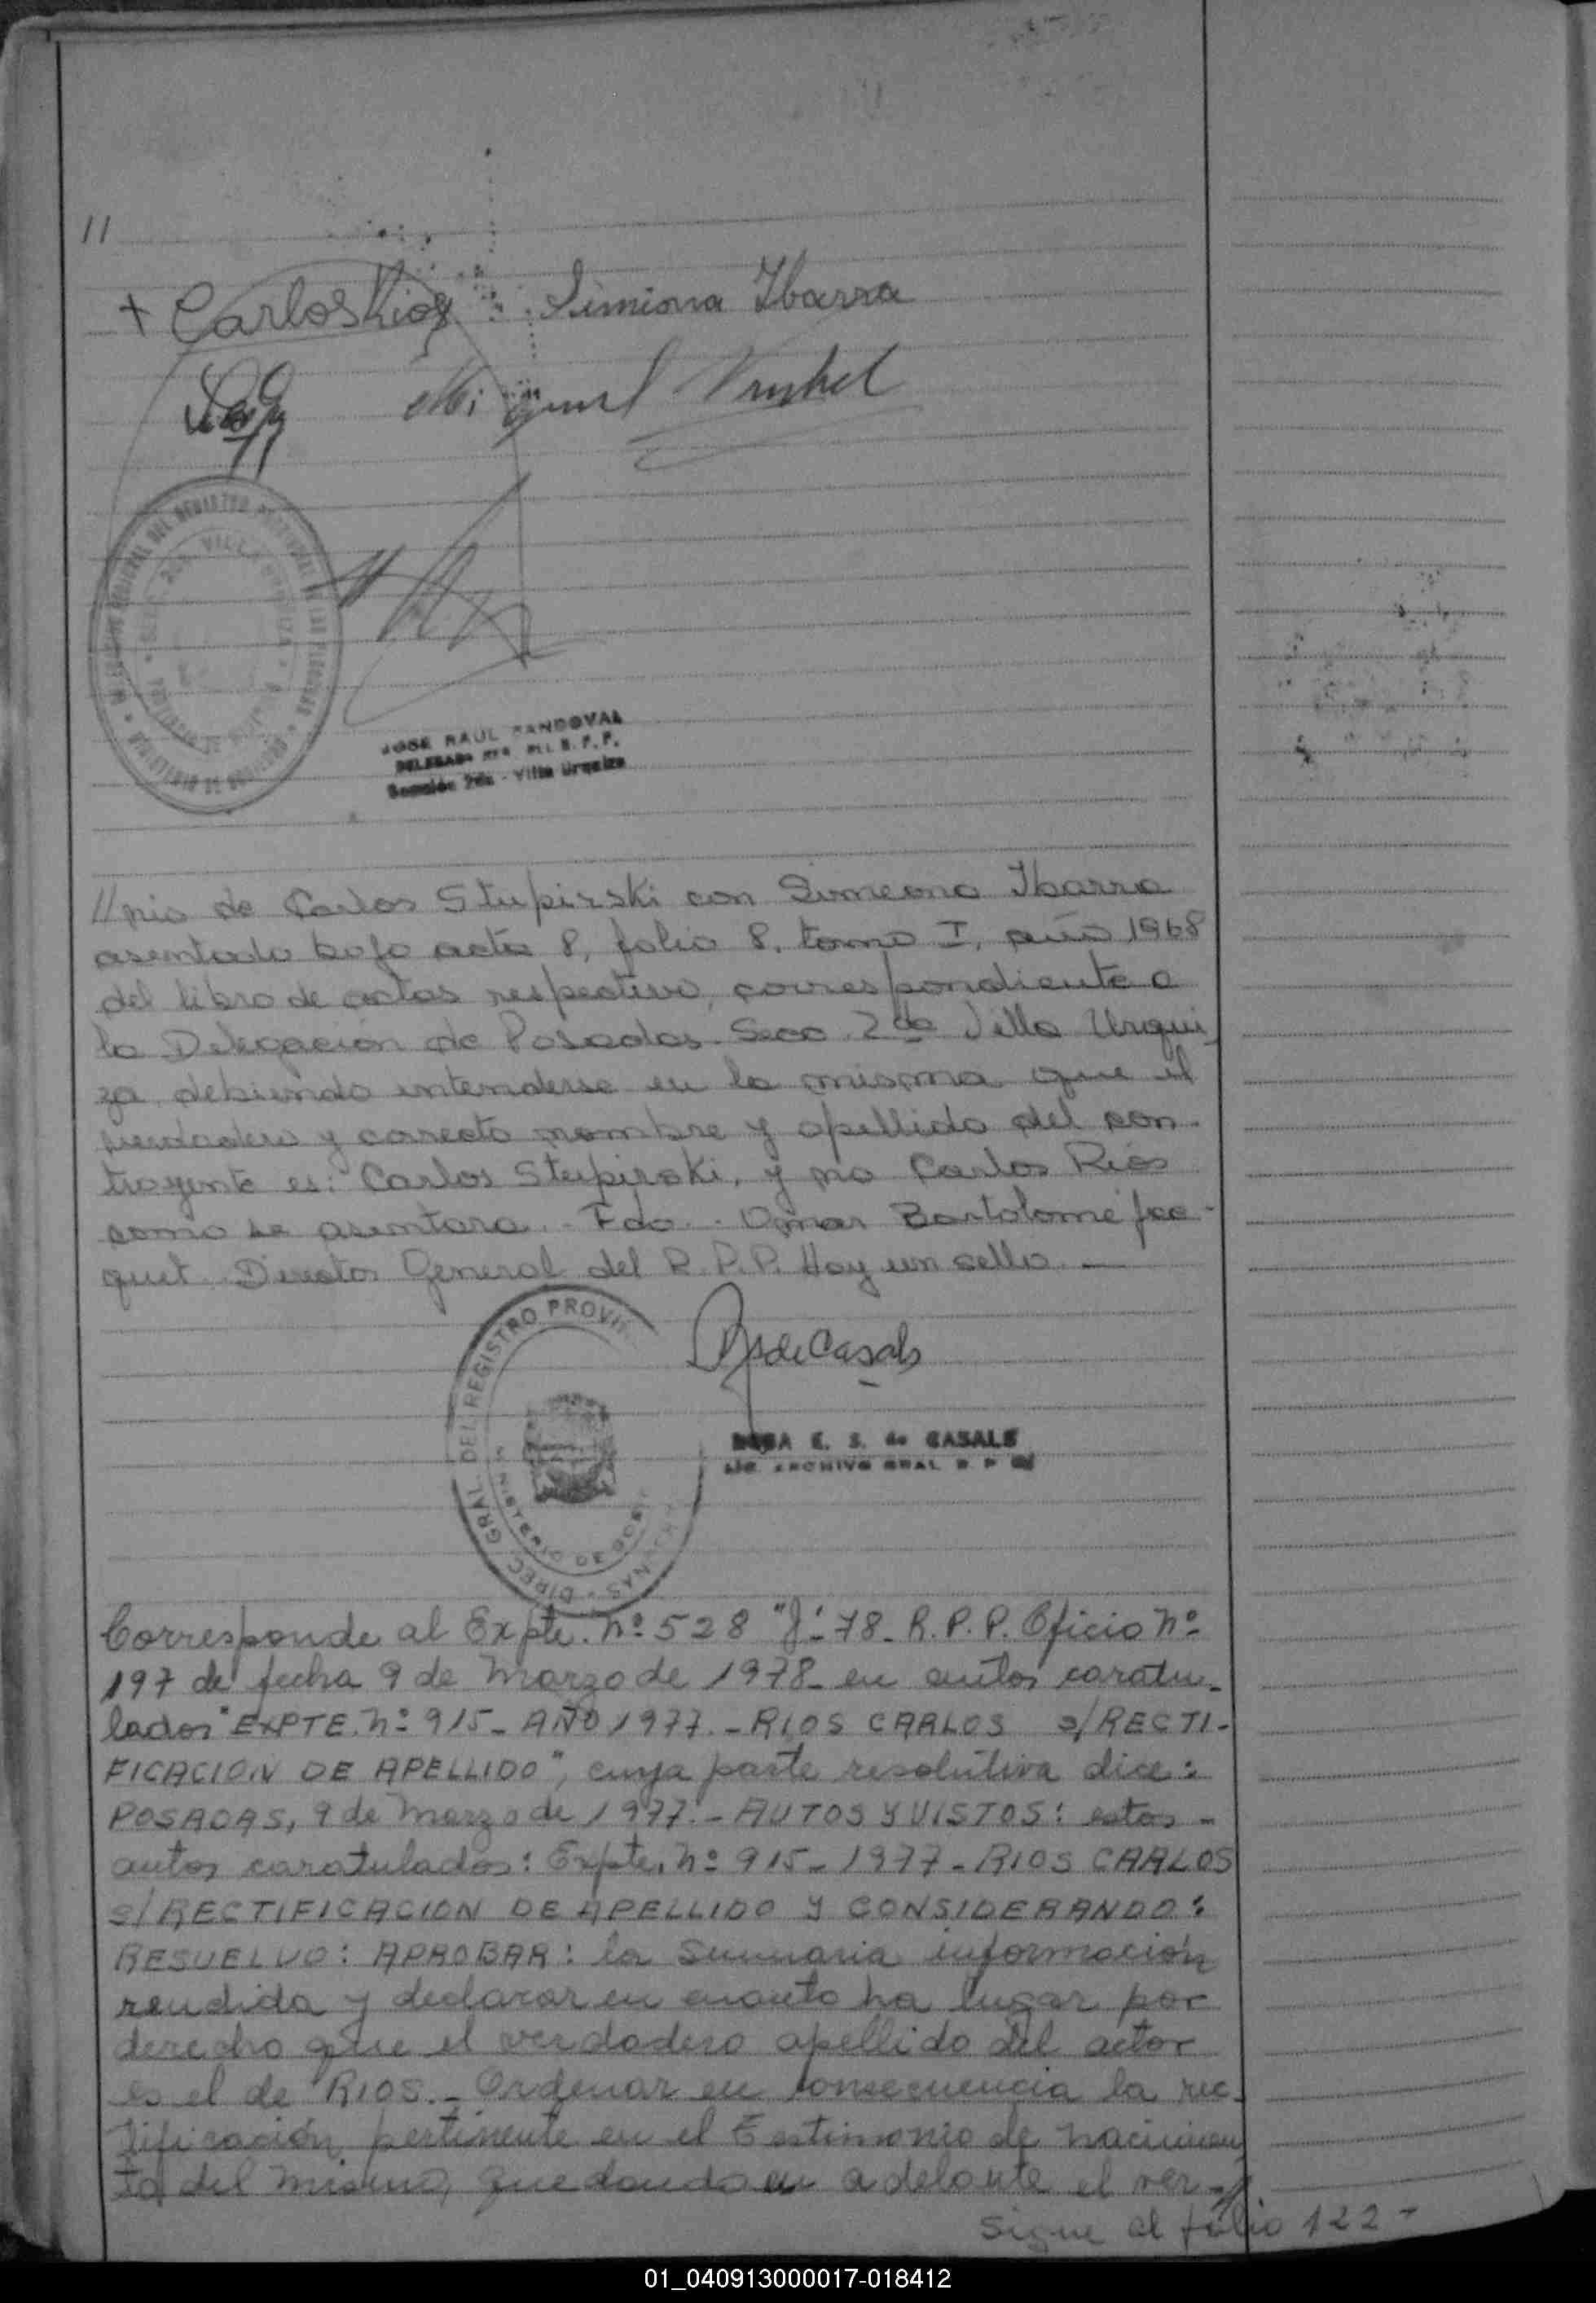 11
+ Carlos Rios Simiona Ibarra
Miguel
JOSE RAUL SANDOVAL
DELEGADO R. P. P.
Sección 2da - Villa Urquiza
//nio de Carlos Stupirski con Simeona Ibarra
asentado bajo acta 8, folio 8, tomo I, año 1968
del libro de actas respectivo, correspondiente a
la Delegación de Posadas Secc. 2da Villa Urqui
za, debiendo entenderse en la misma que el
verdadero y correcto nombre y apellido del con-
trayente es: Carlos Stupirski, y no Carlos Rios
como se asentara. - Fdo. - Omar Bartolomé Jac-
quet Director General del R.P.P. Hay un sello. -
DIREC. GRAL. DEL REGISTRO PROVIN
de Casals
ROSA E. S. de CASALS
ARCHIVO GRAL R. P.
Corresponde al Expte. nº 528 "J"-78- R.P.P. Oficio nº
197 de fecha 9 de Marzo de 1978- en autos caratu-
lados "EXPTE. nº 915- AÑO 1977. - RIOS CARLOS s/RECTI-
FICACION DE APELLIDO", cuya parte resolutiva dice:
POSADAS, 9 de Marzo de 1977. - AUTOS Y VISTOS: estos -
autos caratulados: Expte. nº 915- 1977- RIOS CARLOS
s/RECTIFICACION DE APELLIDO Y CONSIDERANDO:
RESUELVO: APROBAR: la Sumaria información
rendida y declarar en cuanto ha lugar por
derecho que el verdadero apellido del actor
es el de RIOS. - Ordenar en consecuencia la rec-
tificación pertinente en el Testimonio de nacimien
to del mismo, quedando en adelante el ver-//
sigue al folio 122 -
01_040913000017-018412